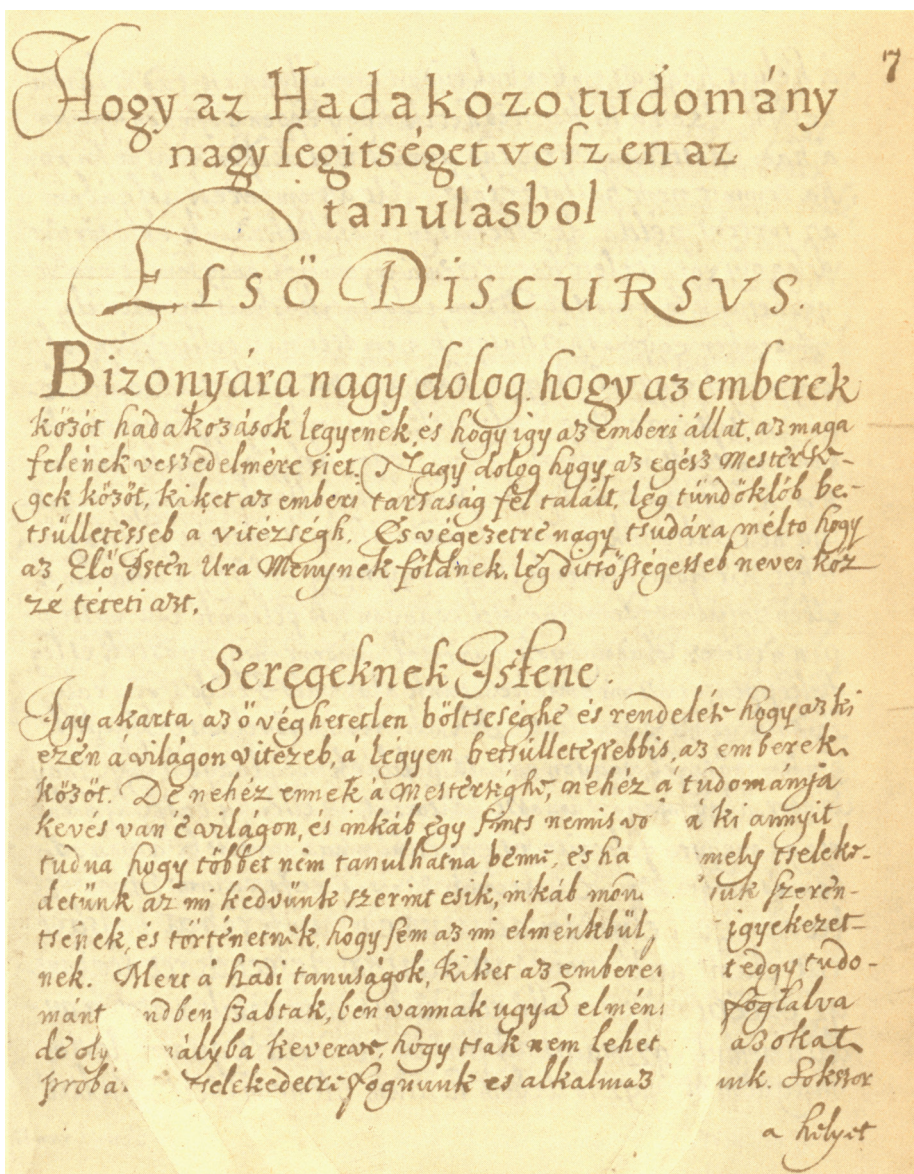 7
Hogy az Hadakozo tudomány
nagy segitséget veszen az
tanulásbol
ELSŐ DISCURSVS.
Bizonyára nagy dolog, hogy az emberek
között hadakozások legyenek, és hogy igy az emberi állat, az maga
felének veszedelmére siet. Nagy dolog hogy az egész mesterse-
gek között, kiket az emberi tarsaság fel talált, leg tündöklőb be-
tsülletesseb a vitézségh. És végezetre nagy tsudára mélto hogy
az Elő Isten Ura Menynek földnek, leg ditsősségesseb nevei köz
zé téteti azt,
Seregeknek Istene.
Igy akarta az ő véghetetlen böltseséghe és rendeléte hogy az ki
ezen á világon vitézeb, á légyen betsülletessebbis, az emberek
között. De nehéz ennek á mesterséghe, nehéz á tudománja
kevés van é világon, és inkáb egy sints nemis vo á ki annyit
tudna hogy többet nem tanulhatna benne, és ha mely tseleke-
detünk az mi kedvünk szerint esik, inkáb mon juk szeren-
tsének, és történetnek, hogy sem az mi elménkbül, igyekezet-
nek. Mert á hadi tanuságok, kiket az embere t edgy tudo-
mánt ndben szabtak, ben vannak ugyā elmén foglalva
de oly mályba keverve, hogy tsak nem lehet azokat
proba tselekedetre fognunk es alkalmaz unk. Sokszor
a helyet